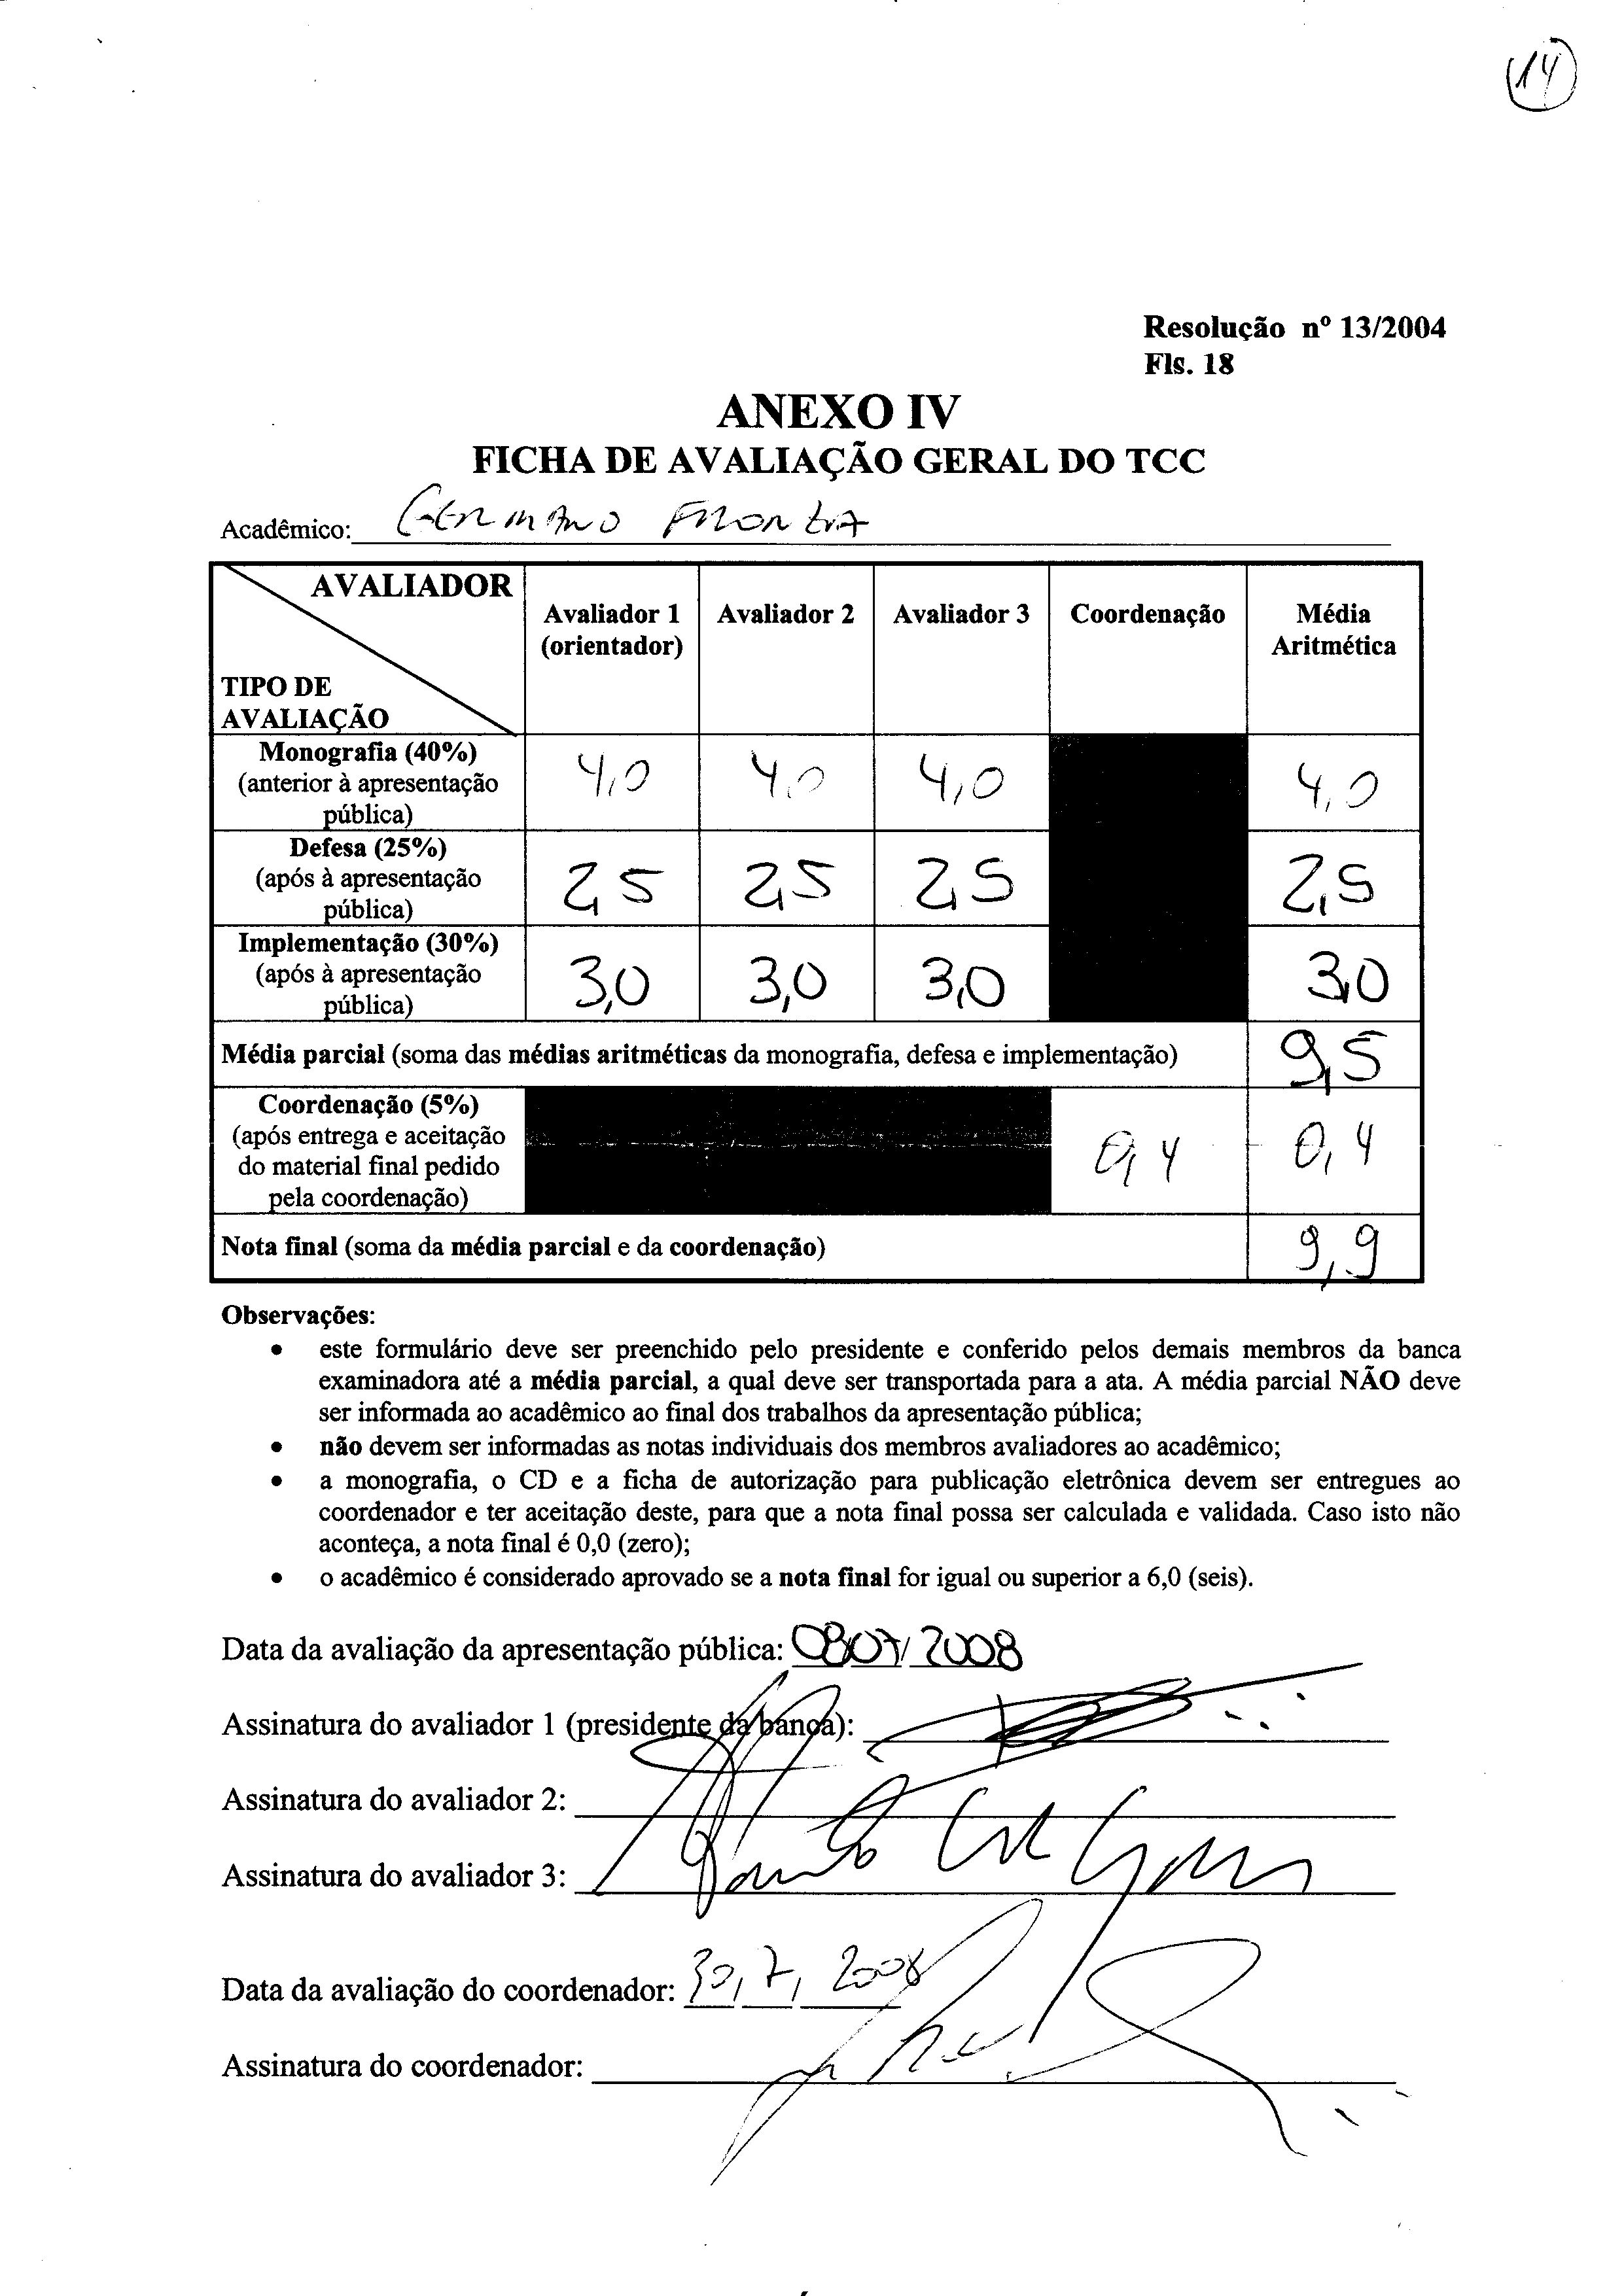 14
Resolução nº 13/2004
Fls. 18
ANEXO IV
FICHA DE AVALIAÇÃO GERAL DO TCC
Acadêmico: Germano
AVALIADOR
TIPO DE
AVALIAÇÃO
Avaliador 1
(orientador)
Avaliador 2
Avaliador 3
Coordenação
Média
Aritmética
Monografia (40%)
(anterior à apresentação
pública)
4,0 4,0 4,0 4,0
Defesa (25%)
(após à apresentação
pública)
2,5 2,5 2,5 2,5
Implementação (30%)
(após à apresentação
pública)
3,0 3,0 3,0 3,0
Média parcial (soma das médias aritméticas da monografia, defesa e implementação) 9,5
Coordenação (5%)
(após entrega e aceitação
do material final pedido
pela coordenação)
0,4 0,4
Nota final (soma da média parcial e da coordenação) 9,9
Observações:
• este formulário deve ser preenchido pelo presidente e conferido pelos demais membros da banca
examinadora até a média parcial, a qual deve ser transportada para a ata. A média parcial NÃO deve
ser informada ao acadêmico ao final dos trabalhos da apresentação pública;
• não devem ser informadas as notas individuais dos membros avaliadores ao acadêmico;
• a monografia, o CD e a ficha de autorização para publicação eletrônica devem ser entregues ao
coordenador e ter aceitação deste, para que a nota final possa ser calculada e validada. Caso isto não
aconteça, a nota final é 0,0 (zero);
• o acadêmico é considerado aprovado se a nota final for igual ou superior a 6,0 (seis).
Data da avaliação da apresentação pública: 08/07/2008
Assinatura do avaliador 1 (presidente da banca):
Assinatura do avaliador 2:
Assinatura do avaliador 3:
Data da avaliação do coordenador: 30/7/2008
Assinatura do coordenador: